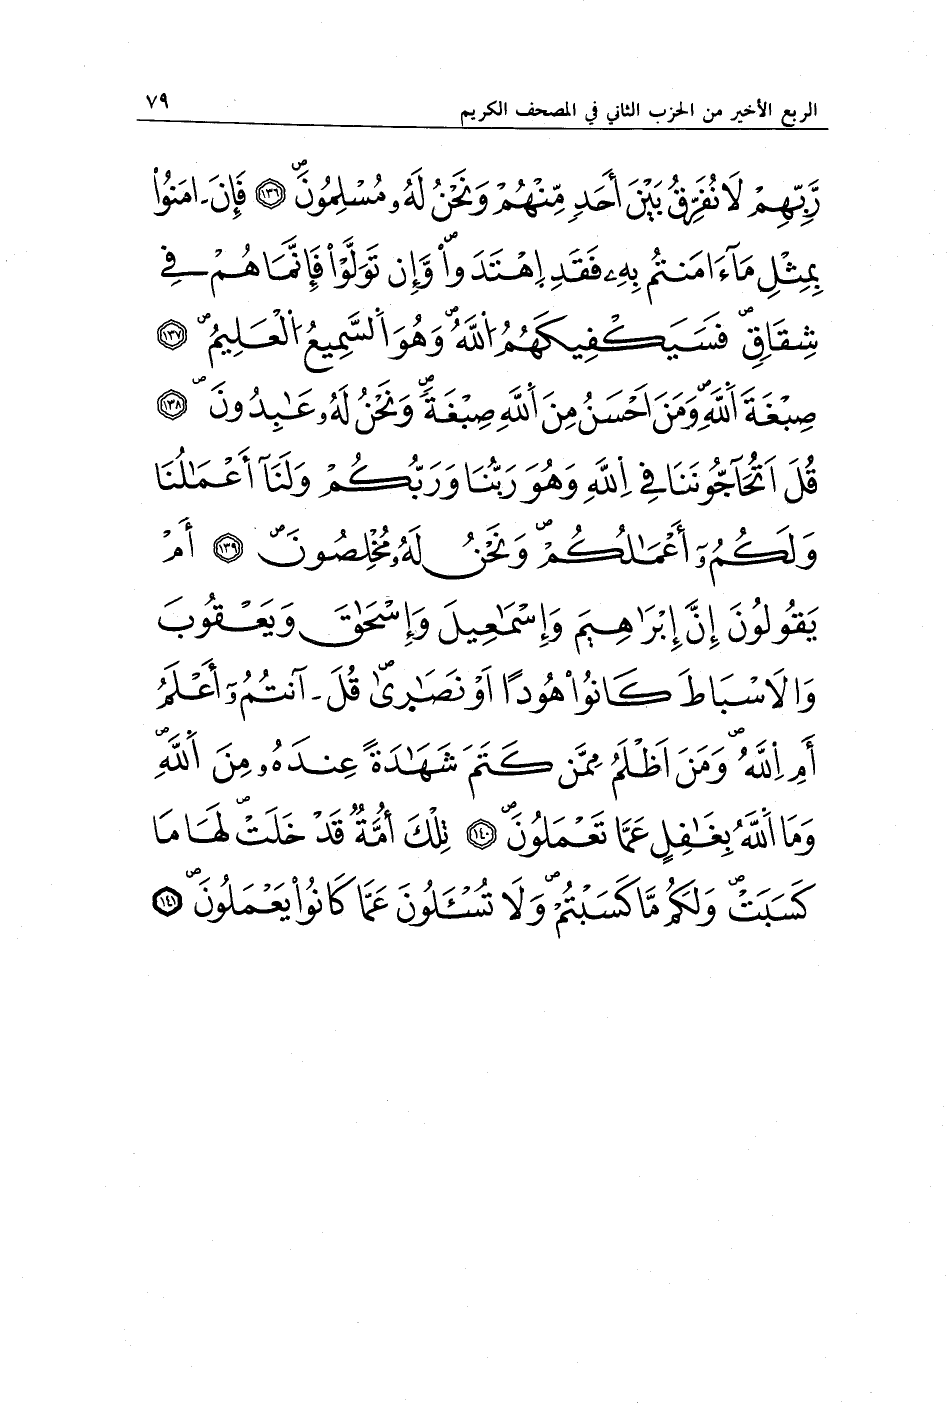 الربع الأخير من الحزب الثاني في المصحف الكريم ٧٩
رَّبِّهِمْ لَا نُفَرِّقُ بَيْنَ أَحَدٍ مِّنْهُمْ وَنَحْنُ لَهُۥ مُسْلِمُونَۖ ۝١٣٦ فَإِنَ ـ امَنُواْ
بِمِثْلِ مَآ ءَامَنتُم بِهِۦ فَقَدِ اِهْتَدَواْۖ وَّإِن تَوَلَّوْاْ فَإِنَّمَا هُمْ فِے
شِقَاقٖۖ فَسَيَكْفِيكَهُمُ اُللَّهُۖ وَهُوَ اَلسَّمِيعُ اُلْعَلِيمُۖ ۝١٣٧
صِبْغَةَ اَللَّهِۖ وَمَنَ اَحْسَنُ مِنَ اَللَّهِ صِبْغَةٗۖ وَنَحْنُ لَهُۥ عَٰبِدُونَۖ ۝١٣٨
قُلَ اَتُحَآجُّونَنَا فِے اِللَّهِ وَهُوَ رَبُّنَا وَرَبُّكُمْ وَلَنَآ أَعْمَٰلُنَا
وَلَكُمُۥٓ أَعْمَٰلُكُمْۖ وَنَحْنُ لَهُۥ مُخْلِصُونَۖ ۝١٣٩ أَمْ
يَقُولُونَ إِنَّ إِبْرَٰهِيمَ وَإِسْمَٰعِيلَ وَإِسْحَٰقَ وَيَعْقُوبَ
وَالَاسْبَاطَ كَانُواْ هُودًا اَوْ نَصَٰرَىٰۖ قُلَ ـ آنتُمُۥٓ أَعْلَمُ
أَمِ اِللَّهُۖ وَمَنَ اَظْلَمُ مِمَّن كَتَمَ شَهَٰدَةً عِندَهُۥ مِنَ اَللَّهِۖ
وَمَا اَللَّهُ بِغَٰفِلٍ عَمَّا تَعْمَلُونَۖ ۝١٤٠ تِلْكَ أُمَّةٞ قَدْ خَلَتْۖ لَهَا مَا
كَسَبَتْۖ وَلَكُم مَّا كَسَبْتُمْۖ وَلَا تُسْـَٔلُونَ عَمَّا كَانُواْ يَعْمَلُونَۖ ۝١٤١